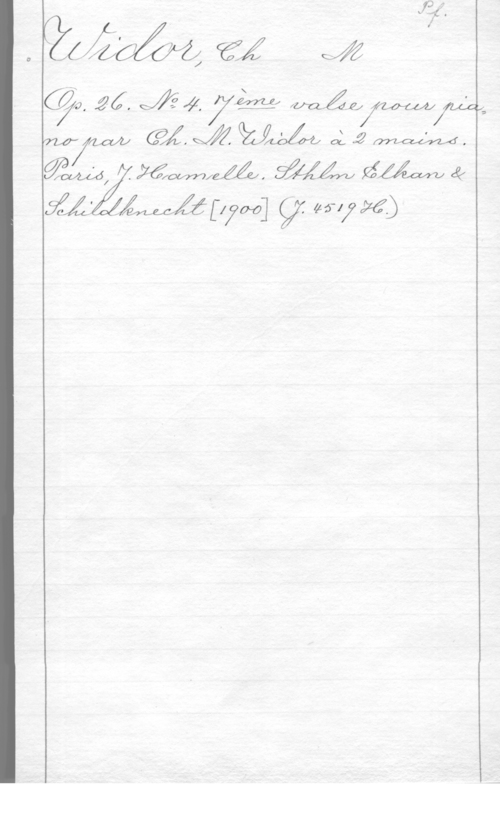 Pf.
Widor, Ch M
Op. 26. № 4. 7ème valse pour pia-
no par Ch. M. Widor à 2 mains.
Paris, J. Hamelle. Sthlm Elkan &
Schildknecht [1900] (J. 4519 H.)